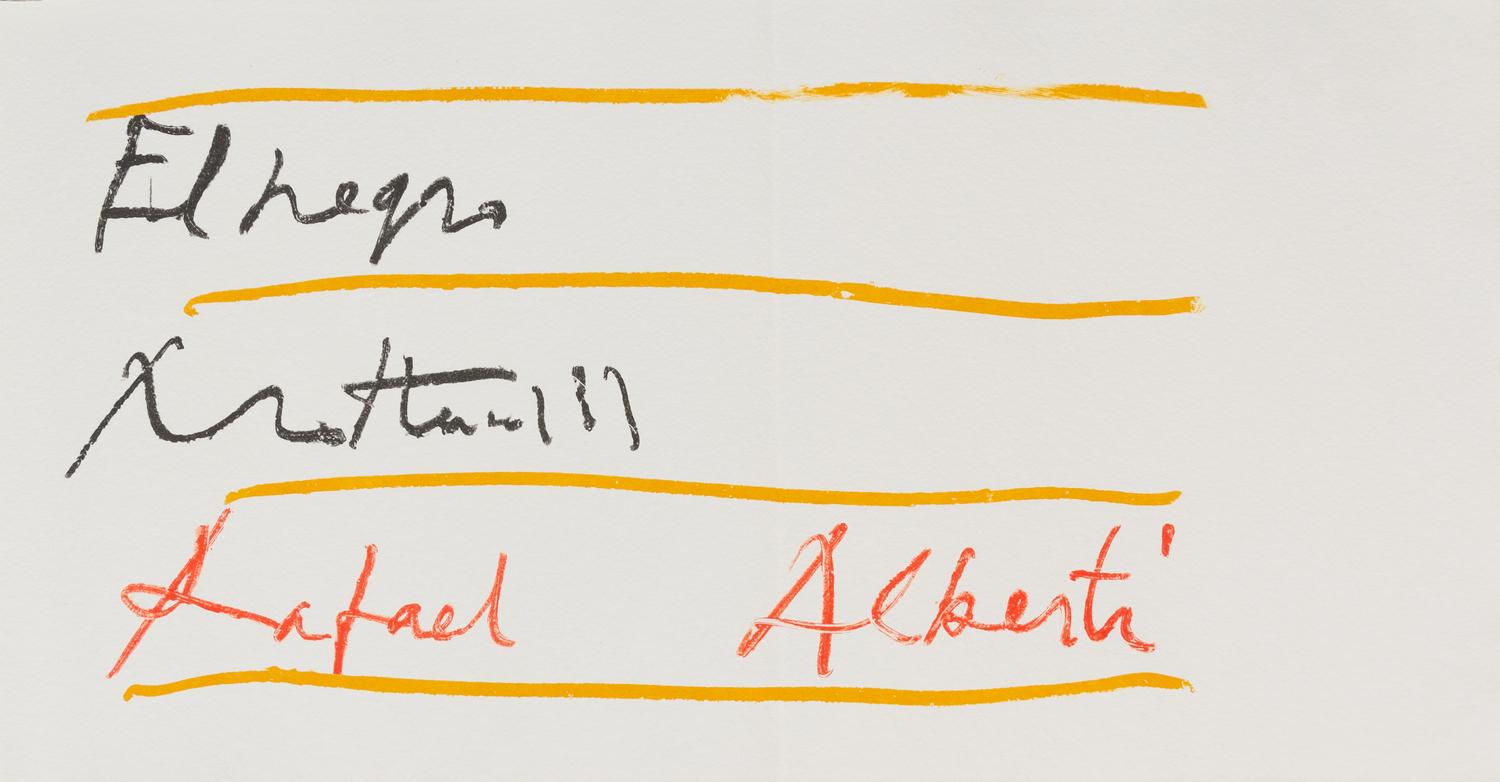 El negro
Motherwell
Rafael Alberti